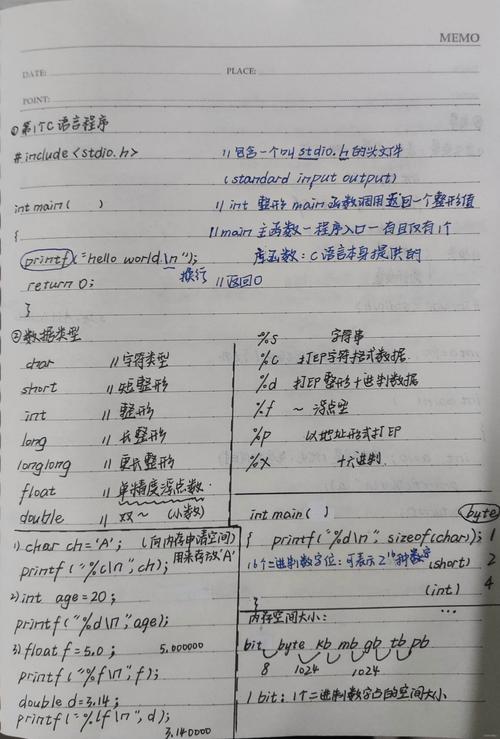 MEMO
DATE:
PLACE:
POINT:
①第1个C语言程序
#include<stdio.h> //包含一个叫stdio.h的头文件
(standard input output)
int main( ) //int 整形 main函数调用返回一个整形值
{ //main 主函数—程序入口—有且仅有1个
printf("hello world.\n"); 库函数:C语言本身提供的
换行
return 0; //返回0
}
②数据类型
char //字符类型
short //短整形
int //整形
long //长整形
longlong //更长整形
float //单精度浮点数
double //双~ (小数)
%s 字符串
%c 打印字符格式数据
%d 打印整形十进制数据
%f ~ 浮点型
%p 以地址形式打印
%x 十六进制
1) char ch='A'; (向内存申请空间)
用来存放'A'
printf("%c\n", ch);
2) int age=20;
printf("%d\n", age);
3) float f=5.0; 5.000000
printf("%f\n", f);
double d=3.14;
printf("%lf\n", d);
3.140000
int main( ) byte
{ printf("%d\n", sizeof(char)); 1
16个二进制数字位:可表示2^16种数字 (short) 2
(int) 4
} ...
内存空间大小:
bit byte kb mb gb tb pb
8 1024 1024
1 bit:1个二进制数字占的空间大小